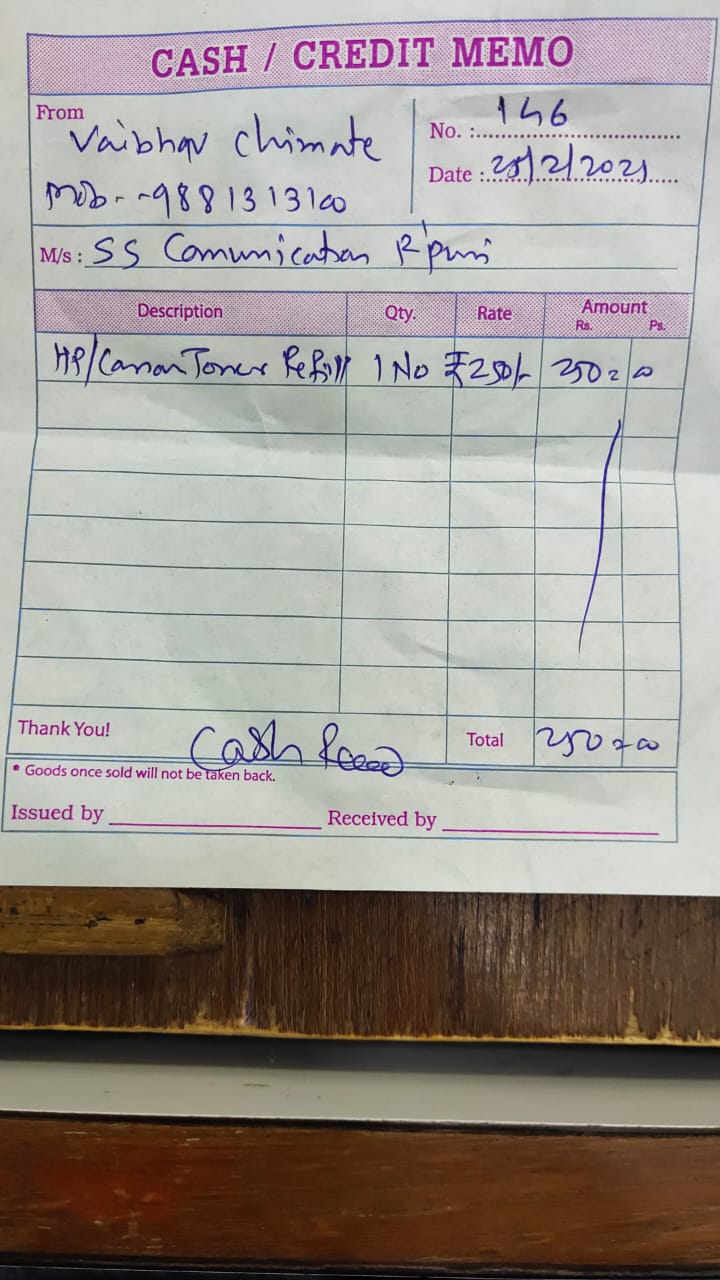 CASH / CREDIT MEMO
From
Vaibhav Chimate
Mob - -9881313100
No. : 146
Date : 25/2/2021
M/s : SS Comunication R'puri
Description Qty. Rate Amount
Rs. Ps.
HP/Canon Toner Refill 1 No ₹250/- 250=00
Thank You!
Cash
Total 250=00
• Goods once sold will not be taken back.
Issued by Received by